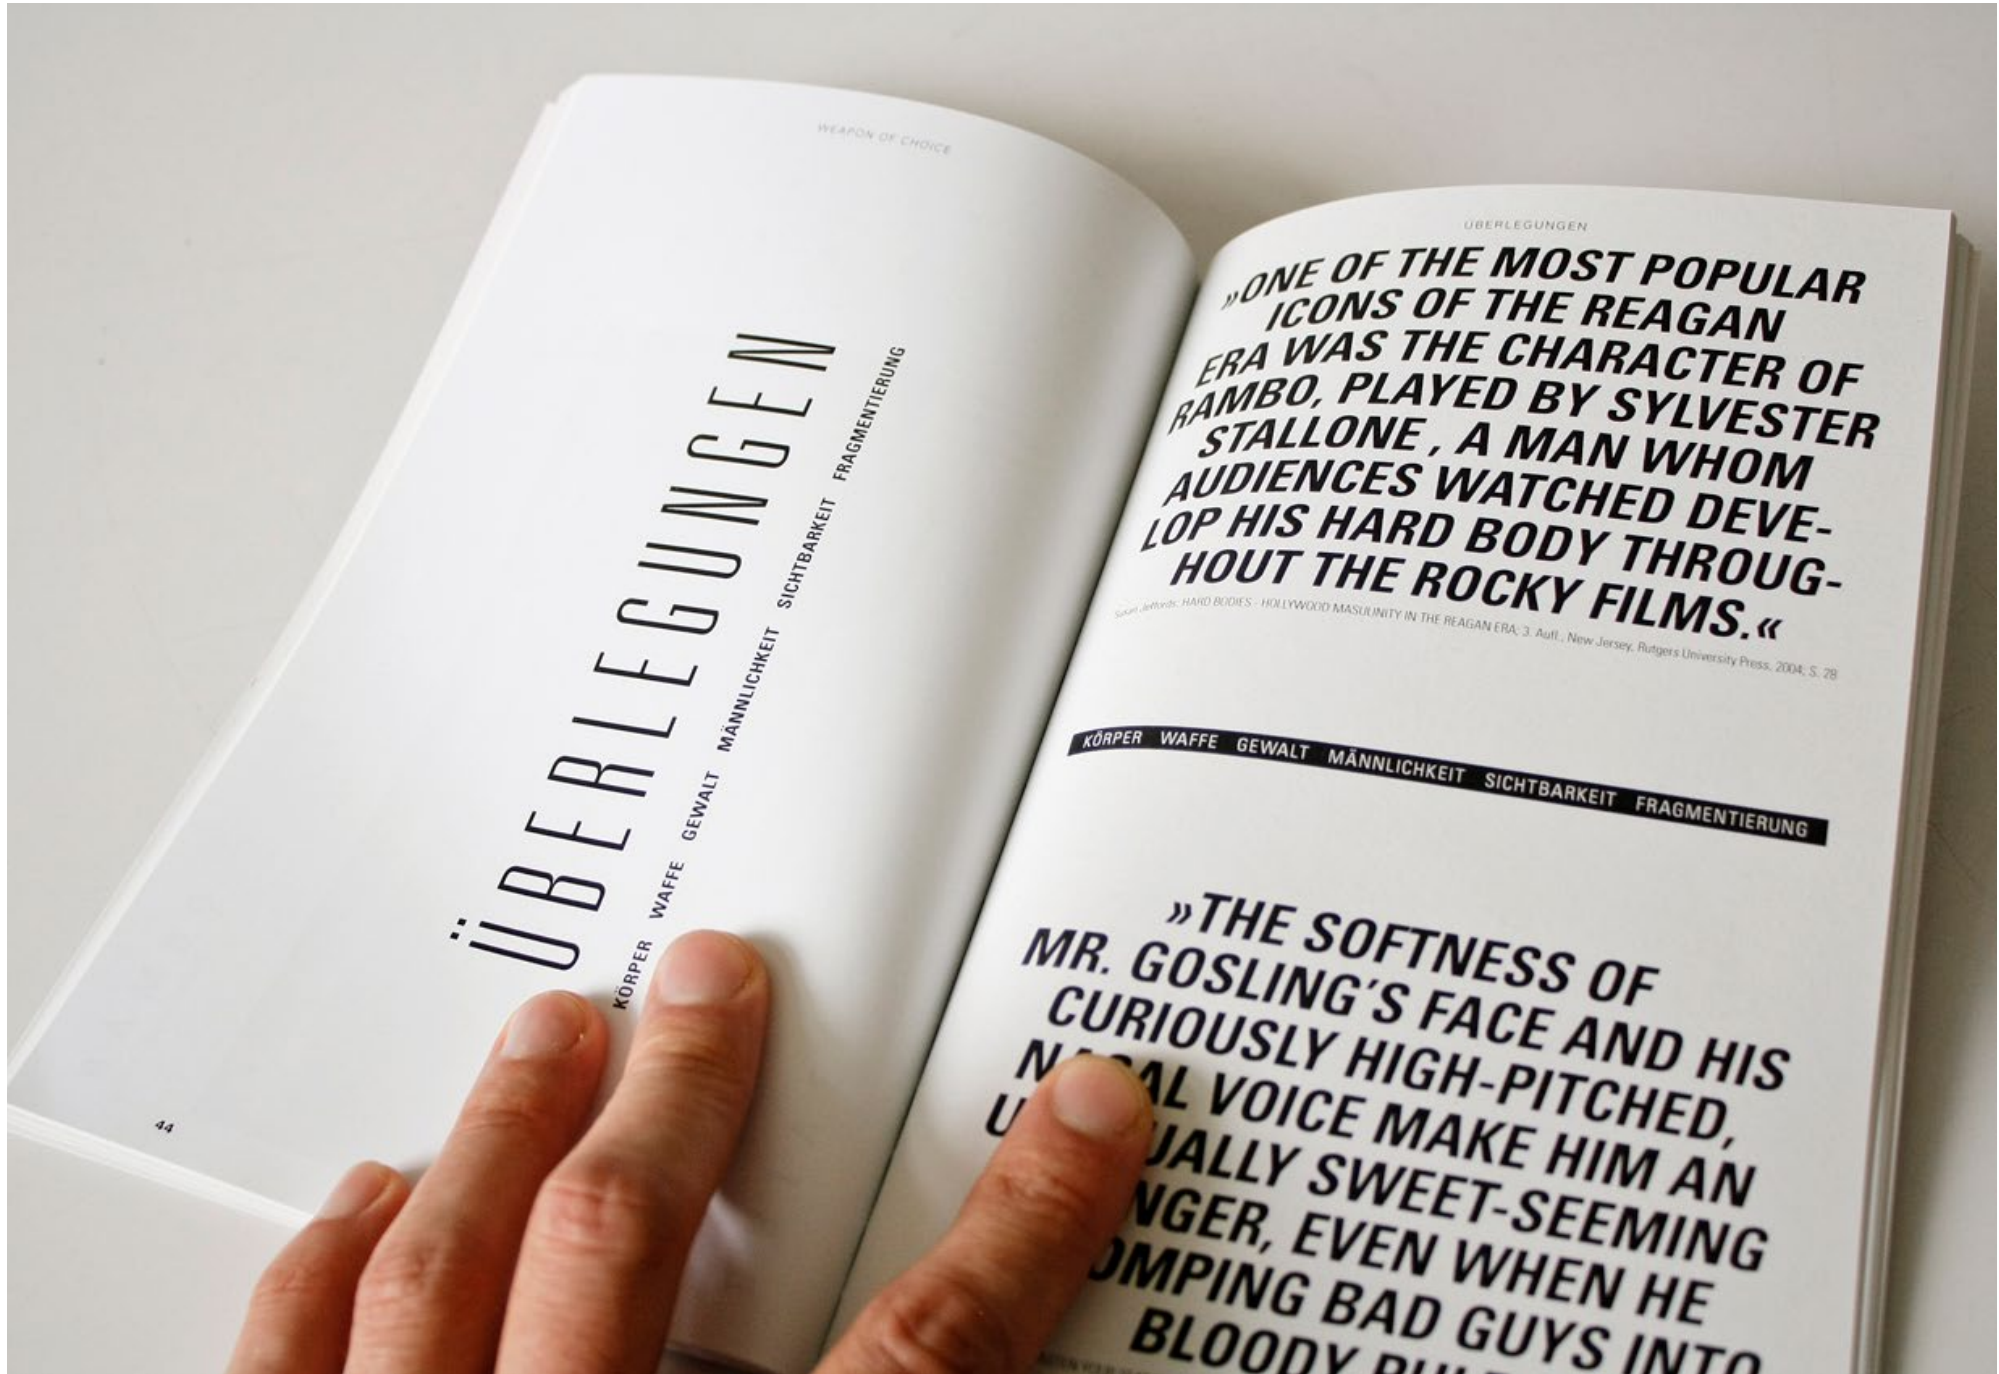 WEAPON OF CHOICE
ÜBERLEGUNGEN
KÖRPER WAFFE GEWALT MÄNNLICHKEIT SICHTBARKEIT FRAGMENTIERUNG
44
ÜBERLEGUNGEN
»ONE OF THE MOST POPULAR
ICONS OF THE REAGAN
ERA WAS THE CHARACTER OF
RAMBO, PLAYED BY SYLVESTER
STALLONE , A MAN WHOM
AUDIENCES WATCHED DEVE-
LOP HIS HARD BODY THROUG-
HOUT THE ROCKY FILMS.«
Susan Jeffords: HARD BODIES - HOLLYWOOD MASULINITY IN THE REAGAN ERA; 3. Aufl., New Jersey, Rutgers University Press, 2004; S. 28
KÖRPER WAFFE GEWALT MÄNNLICHKEIT SICHTBARKEIT FRAGMENTIERUNG
»THE SOFTNESS OF
MR. GOSLING'S FACE AND HIS
CURIOUSLY HIGH-PITCHED,
VOICE MAKE HIM AN
SWEET-SEEMING
EVEN WHEN HE
BAD GUYS INTO
BLOODY